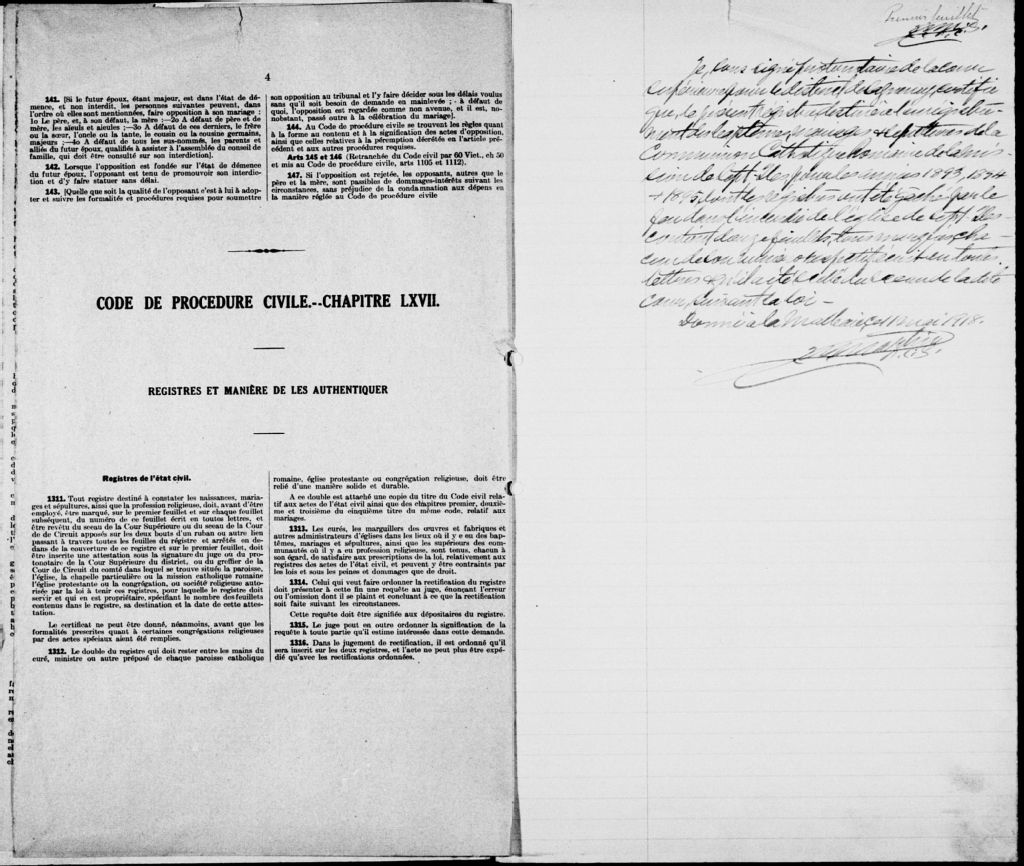 4
141. [Si le futur époux, étant majeur, est dans l'état de dé-
mence, et non interdit, les personnes suivantes peuvent, dans
l'ordre où elles sont mentionnées, faire opposition à son mariage :
1o Le père, et, à son défaut, la mère ;—2o A défaut de père et de
mère, les aïeuls et aïeules ;—3o A défaut de ces derniers, le frère
ou la sœur, l'oncle ou la tante, le cousin ou la cousine germains,
majeurs ;—4o A défaut de tous les sus-nommés, les parents et
alliés du futur époux, qualifiés à assister à l'assemblée du conseil de
famille, qui doit être consulté sur son interdiction].
142. Lorsque l'opposition est fondée sur l'état de démence
du futur époux, l'opposant est tenu de promouvoir son interdic-
tion et d'y faire statuer sans délai.
143. [Quelle que soit la qualité de l'opposant c'est à lui à adop-
ter et suivre les formalités et procédures requises pour soumettre
son opposition au tribunal et l'y faire décider sous les délais voulus
sans qu'il soit besoin de demande en mainlevée ; - à défaut de
quoi, l'opposition est regardée comme non avenue, et il est, no-
nobstant, passé outre à la célébration du mariage].
144. Au Code de procédure civile se trouvent les règles quant
à la forme au contenu et à la signification des actes d'opposition,
ainsi que celles relatives à la péremption décrétés en l'article pré-
cédent et aux autres procédures requises.
Arts 145 et 146 (Retranchée du Code civil par 60 Viet., ch 50
et mis au Code de procédure civile, arts 1105 et 1112).
147. Si l'opposition est rejetée, les opposants, autres que le
père et la mère, sont passibles de dommages-intérêts suivant les
circonstances, sans préjudice de la condamnation aux dépens en
la manière réglée au Code de procédure civile
CODE DE PROCEDURE CIVILE.--CHAPITRE LXVII.
REGISTRES ET MANIÈRE DE LES AUTHENTIQUER
Registres de l'état civil.
1311. Tout registre destiné à constater les naissances, maria-
ges et sépultures, ainsi que la profession religieuse, doit, avant d'être
employé, être marqué, sur le premier feuillet et sur chaque feuillet
subséquent, du numéro de ce feuillet écrit en toutes lettres, et
être revêtu du sceau de la Cour Supérieure ou du sceau de la Cour
de Circuit apposés sur les deux bouts d'un ruban ou autre lien
passant à travers toutes les feuilles du registre et arrêtés en de-
dans de la couverture de ce registre et sur le premier feuillet, doit
être inscrite une attestation sous la signature du juge ou du pro-
tonotaire de la Cour Supérieure du district, ou du greffier de la
Cour de Circuit du comté dans lequel se trouve située la paroisse,
l'église, la chapelle particulière ou la mission catholique romaine
l'église protestante ou la congrégation, ou société religieuse auto-
risée par la loi à tenir ces registres, pour laquelle le registre doit
servir et qui en est propriétaire, spécifiant le nombre des feuillets
contenus dans le registre, sa destination et la date de cette attes-
tation.
Le certificat ne peut être donné, néanmoins, avant que les
formalités prescrites quant à certaines congrégations religieuses
par des actes spéciaux aient été remplies.
1312. Le double du registre qui doit rester entre les mains du
curé, ministre ou autre préposé de chaque paroisse catholique
romaine, église protestante ou congrégation religieuse, doit être
relié d'une manière solide et durable.
A ce double est attaché une copie du titre du Code civil rela-
tif aux actes de l'état civil ainsi que des chapitres premier, deuxiè-
me et troisième du cinquième titre du même code, relatif aux
mariages.
1313. Les curés, les marguillers des œuvres et fabriques et
autres administrateurs d'églises dans les lieux où il y a eu des bap-
têmes, mariages et sépultures, ainsi que les supérieurs des com-
munautés où il y a eu profession religieuse, sont tenus, chacun à
son égard, de satisfaire aux prescriptions de la loi, relativement aux
registres des actes de l'état civil, et peuvent y être contraints par
les lois et sous les peines et dommages que de droit.
1314. Celui qui veut faire ordonner la rectification du registre
doit présenter à cette fin une requête au juge, énonçant l'erreur
ou l'omission dont il se plaint et concluant à ce que la rectification
soit faite suivant les circonstances.
Cette requête doit être signifiée aux dépositaires du registre.
1315. Le juge peut en outre ordonner la signification de la
requête à toute partie qu'il estime intéressée dans cette demande.
1316. Dans le jugement de rectification, il est ordonné qu'il
sera inscrit sur les deux registres, et l'acte ne peut plus être expé-
dié qu'avec les rectifications ordonnées.
Premier feuillet
Je, sous signé protonotaire de la cour
supérieure pour le district de Saguenay, certifie
que, le présent registre est destiné à l'enregistre-
ment des baptêmes, mariages & sépultures de la
Communion Catholique Romaine de la mis
sion de Sept-Iles pour les années 1893, 1894
& 1895, dont les registres ont été par le
feu dans l'incendie de l'église de Sept-Iles
contient feuillets, tous marqués cha
cun de son numéro respectif écrit en toutes
lettres & qu'il a été scellé du sceau de la dite
cour suivant la loi –
Donné à la Malbaie, ce 11 mai 1918.